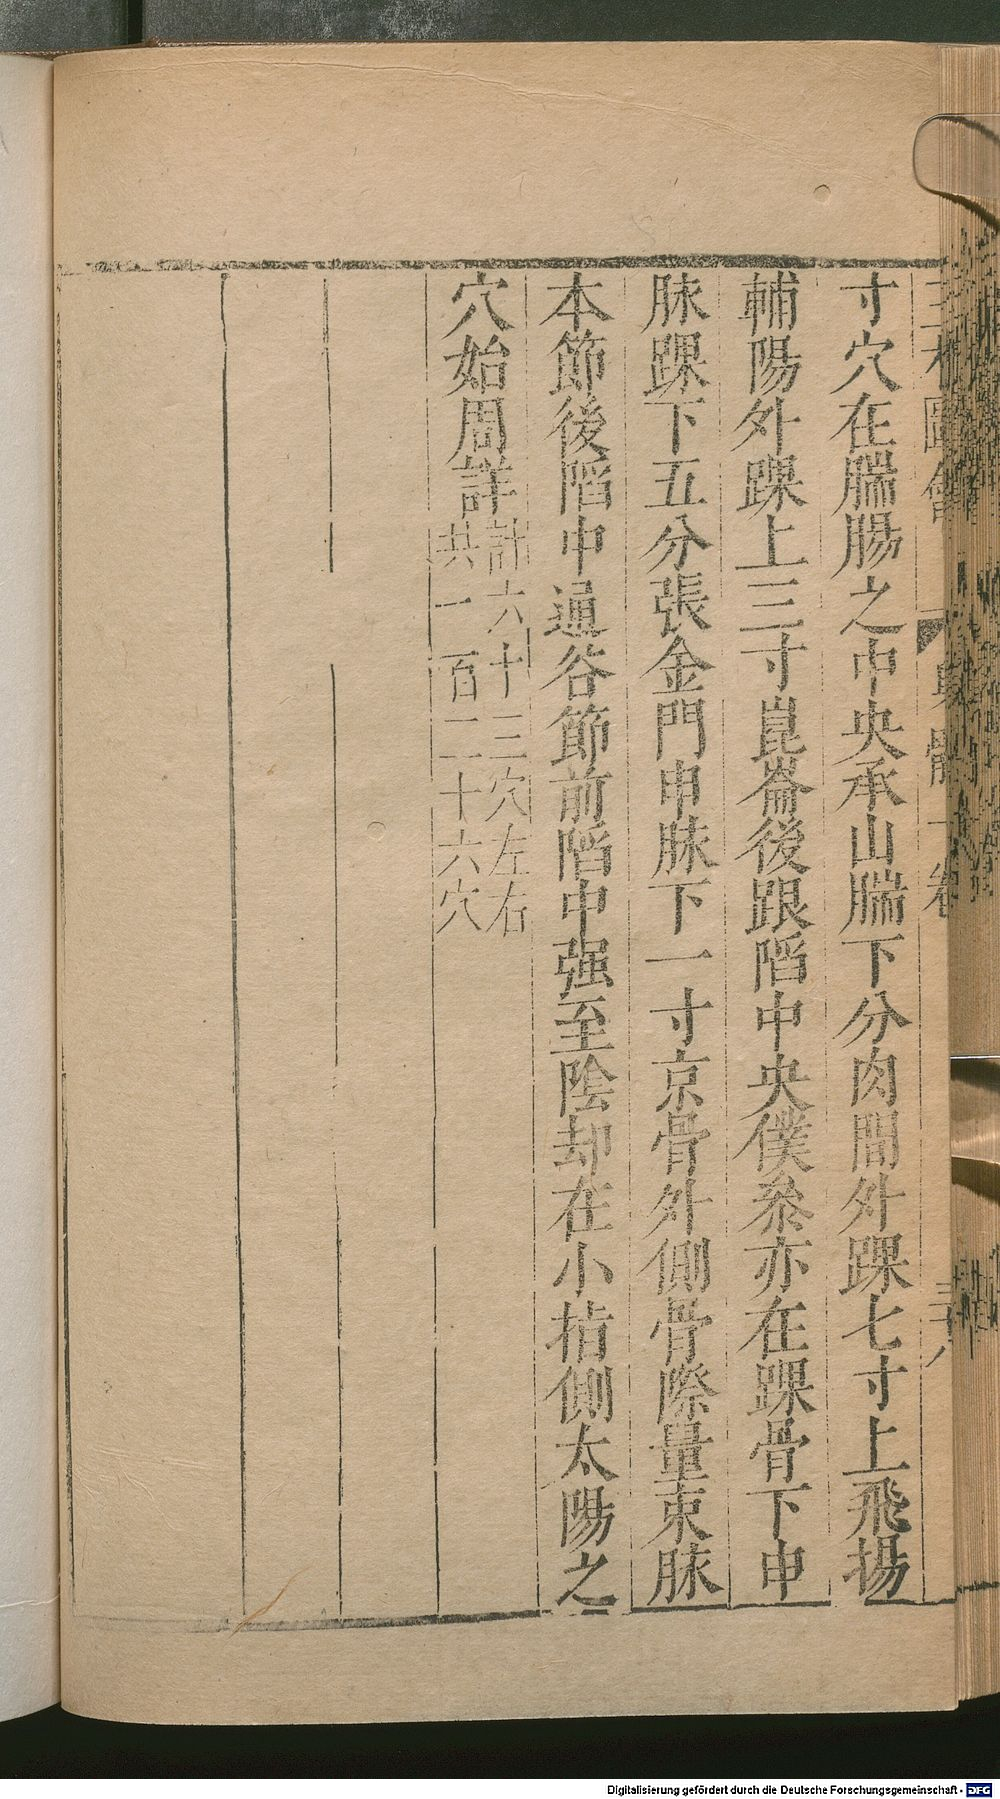 三才圖會 身體一卷 三十八
寸穴在腨腸之中央承山腨下分肉間外踝七寸上飛揚
輔陽外踝上三寸崑崙後跟陷中央僕叅亦在踝骨下申
脉踝下五分張金門申脉下一寸京骨外側骨際量束脉
本節後陷中通谷節前陷中强至陰却在小指側太陽之
穴始周詳計六十三穴左右
共一百二十六穴
Digitalisierung gefördert durch die Deutsche Forschungsgemeinschaft - DFG